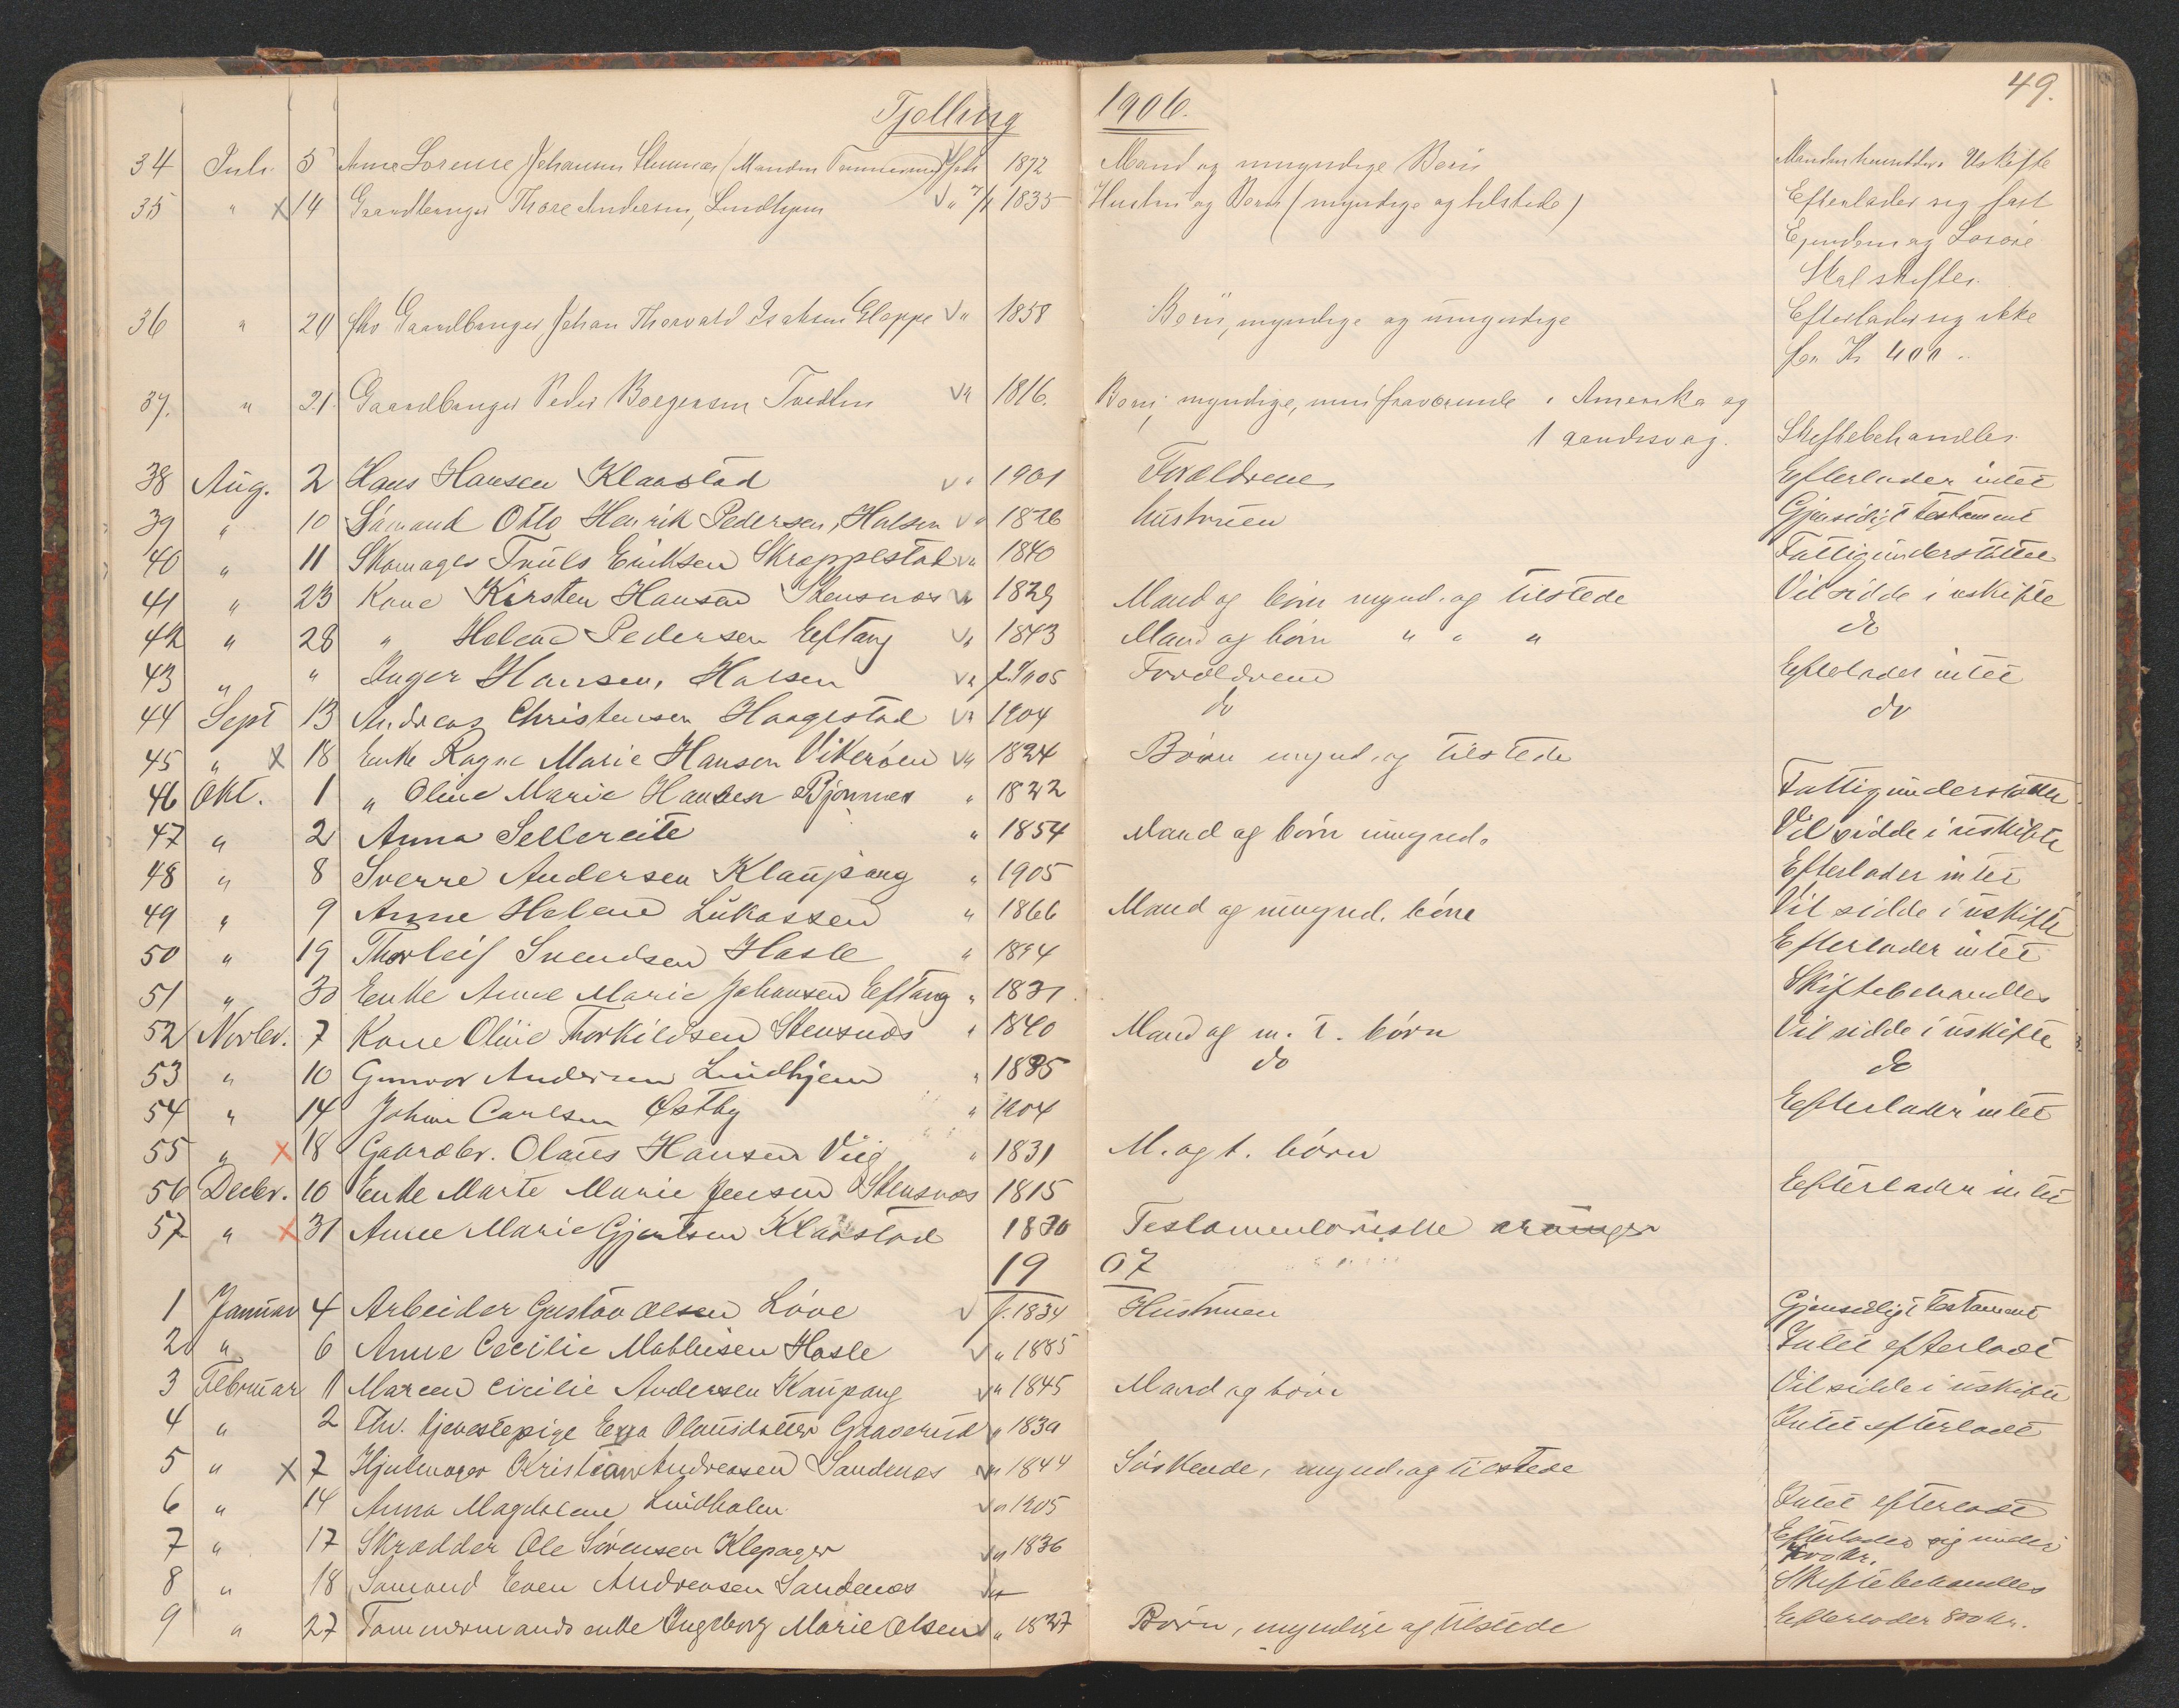 Tjølling 1906. 49.
34 Juli 5 Anne Lorense Johansen (Manden f. 1872 Mand og umyndige Børn Uskifte
35 " X 14 Gaardbruger Thore Andersen, Lindhjem " 1835 Hustru og Børn (myndige og tilstede) Efterlader sig fast
Eiendom og Løsøre
Skal skiftes.
36 " 20 fhv Gaardbruger Johan Thorvald Isaksen Gloppe " 1858 Børn, myndige og umyndige Efterlader sig ikke
Kr 400.
37. " 21. Gaardbruger Peder Borgersen Tvedten " 1816. Børn, myndige, men fraværende i Amerika og
1 aandssvag. Skiftebehandles.
38 Aug. 2 Hans Hansen Klaastad " 1901 Forældrene Efterlader intet
39 " 10 Sömand Otto Henrik Pedersen, Halsen " 1876 hustruen Gjensidigt testament
40 " 11 Skomager Truls Eriksen Skreppestad " 1840 Fattigunderstöttet
41 " 23 Kone Kirsten Hansen Stensnes " 1829 Mand og börn mynd. og tilstede Vil sidde i uskifte
42 " 28 " Helene Pedersen Eftang " 1843 Mand og börn " " " do
43 " " Inger Hansen, Halsen " 05 Forældrene Efterlader intet
44 Sept 13 Andreas Christensen Haagestad " 1904 do do
45 " X 18 Enke Ragne Marie Hansen Vikeröen " 1824 Börn mynd. og tilstede
46 Okt. 1 " Oline Marie Hansen Bjönnes " 1822 Fattigunderstöttet
47 " 2 Anna Sellereite " 1854 Mand og börn umynd. Vil sidde i uskifte
48 " 8 Sverre Andersen Klaupang " 1905 Efterlader intet
49 " 9 Anne Helene Lukassen " 1866 Mand og umynd. börn Vil sidde i uskifte
50 " 19 Thorleif Svendsen Hasle " 1894 Efterlader intet
51 " 30 Enke Anne Marie Johansen Eftang " 1831. Skiftebehandles
52 Novbr. 7 Kone Oline Thorkildsen Stensnæs " 1840 Mand og m. t. börn Vil sidde i uskifte
53 " 10 Gunvor Andersen Lindhjem " 1885 do do
54 " 14 Johan Carlsen Östby " 1904 Efterlader intet
55 " X 18 Gaardbr. Olaus Hansen Viig " 1831 M. og t. börn
56 Decbr. 10 Enke Marte Marie Jensen Stensnæs 1815 Efterlader intet
57 " X 31 Anne Marie Gjertsen Klaastad 1830 Testamentariske arvinger
19 07
1 Januar 4 Arbeider Gustav Olsen Löve f. 1834 Hustruen Gjensidigt testament
2 " 6 Anne Cecilie Mathisen Hasle " 1885 Intet efterladt
3 Februar 1 Maren Cicilie Andersen Kaupang " 1845 Mand og börn Vil sidde i uskifte
4 " 2 fhv. tjenestepige Olausdatter " 1839 Intet efterladt
5 " X 7 Hjulmager Kristian Andreasen Sandenæs " 1844 Söskende, mynd. og tilstede
6 " 14 Anna Magdalene Lindholm " 1905 Intet efterladt
7 " 17 Skrædder Ole Sörensen Klepager " 1836 Efterlader sig under
kr.
8 " 18 Sömand Even Andreasen Sandenæs " Skiftebehandles
9 " 27 Tömmermands enke Ingeborg Marie Olsen " 1827 Börn, myndige og tilstede Efterlader 800 kr.